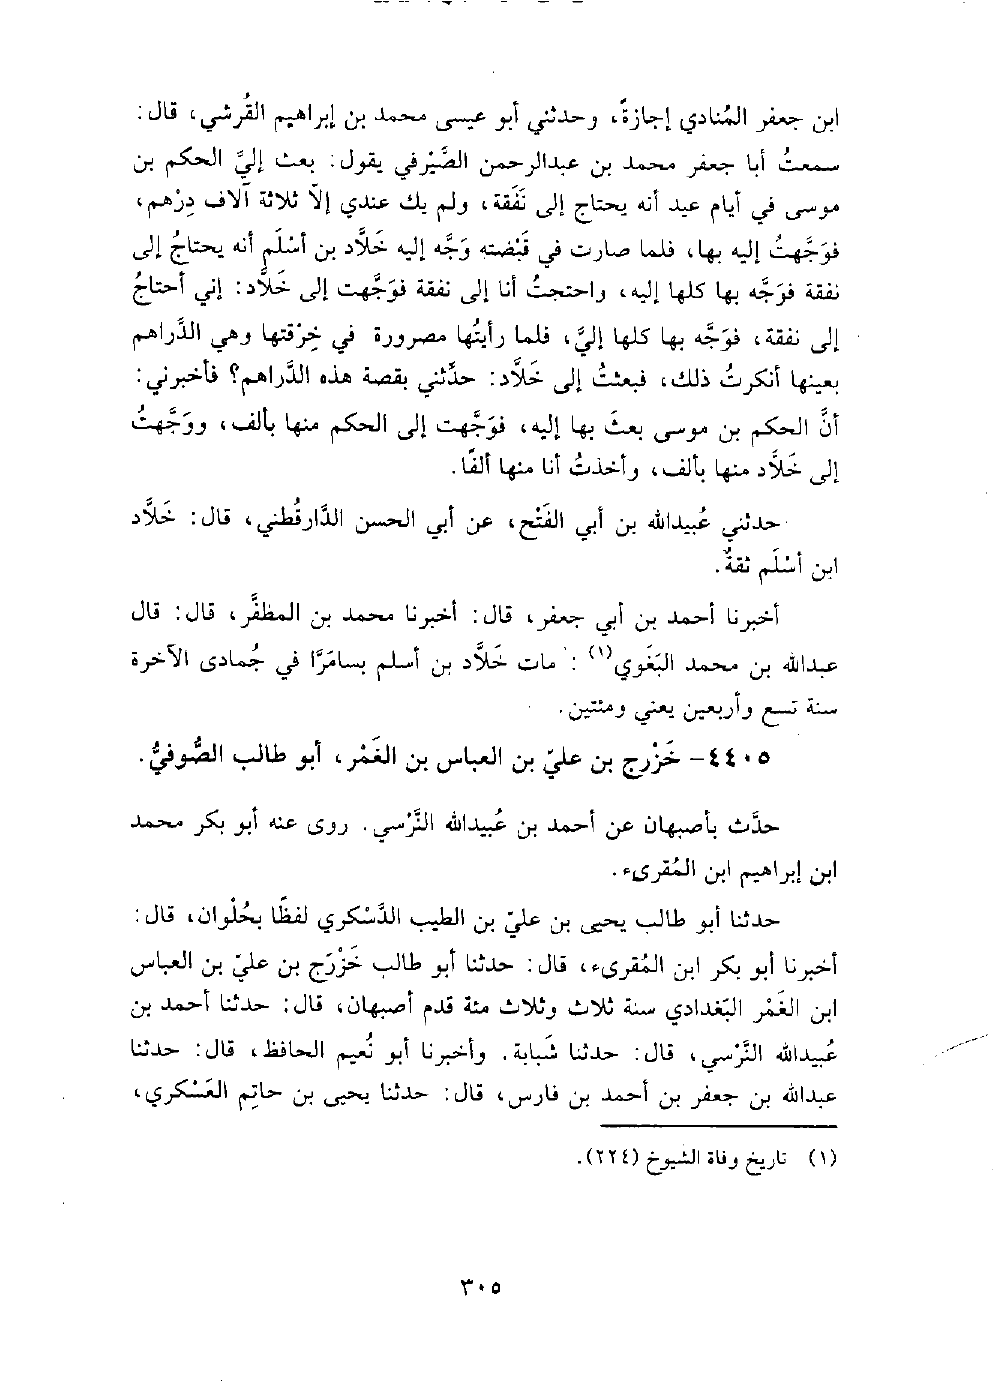 ابن جعفر المُنادي إجازةً، وحدثني أبو عيسى محمد بن إبراهيم القُرشي، قال:
سمعتُ أبا جعفر محمد بن عبدالرحمن الصَّيْرفي يقول: بعث إليَّ الحكم بن
موسى في أيام عيد أنه يحتاج إلى نَفَقة، ولم يك عندي إلاّ ثلاثة آلاف دِرْهم،
فوَجَّهتُ إليه بها، فلما صارت في قَبْضته وَجَّه إليه خَلَّاد بن أسْلَم أنه يحتاجُ إلى
نفقة فوَجَّه بها كلها إليه، واحتجتُ أنا إلى نفقة فوَجَّهت إلى خَلَّاد: إني أحتاجُ
إلى نفقة، فوَجَّه بها كلها إليَّ، فلما رأيتُها مصرورة في خِرْقتها وهي الدَّراهم
بعينها أنكرتُ ذلك، فبعثتُ إلى خَلَّاد: حدِّثني بقصة هذه الدَّراهم؟ فأخبرني:
أنَّ الحكم بن موسى بعثَ بها إليه، فوَجَّهت إلى الحكم منها بألف، ووَجَّهتُ
إلى خَلَّاد منها بألف، وأخذتُ أنا منها ألفًا.
حدثني عُبيدالله بن أبي الفَتْح، عن أبي الحسن الدَّارقُطني، قال: خَلَّاد
ابن أسْلَم ثقةٌ.
أخبرنا أحمد بن أبي جعفر، قال: أخبرنا محمد بن المظفَّر، قال: قال
عبدالله بن محمد البَغَوي(١): مات خَلَّاد بن أسلم بسامَرَّا في جُمادى الآخرة
سنة تسع وأربعين يعني ومئتين.
٤٤٠٥- خَزْرج بن عليّ بن العباس بن الغَمْر، أبو طالب الصُّوفيُّ.
حدَّث بأصبهان عن أحمد بن عُبيدالله النَّرْسي. روى عنه أبو بكر محمد
ابن إبراهيم ابن المُقرىء.
حدثنا أبو طالب يحيى بن عليّ بن الطيب الدَّسْكري لفظًا بحُلْوان، قال:
أخبرنا أبو بكر ابن المُقرىء، قال: حدثنا أبو طالب خَزْرَج بن عليّ بن العباس
ابن الغَمْر البَغدادي سنة ثلاث وثلاث مئة قدم أصبهان، قال: حدثنا أحمد بن
عُبيدالله النَّرْسي، قال: حدثنا شَبابة. وأخبرنا أبو نُعيم الحافظ، قال: حدثنا
عبدالله بن جعفر بن أحمد بن فارس، قال: حدثنا يحيى بن حاتِم العَسْكري،
(١) تاريخ وفاة الشيوخ (٢٢٤).
٣٠٥